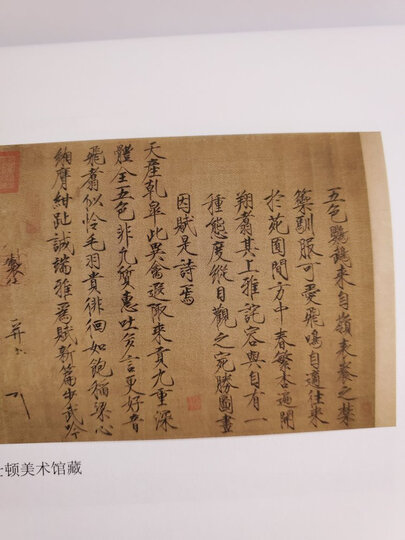 五色鸚鵡來自嶺表養之禁
籞馴服可愛飛鳴自適往來
於苑囿間方中春繁杏遍開
翔翥其上雅詫容與自有一
種態度縱目觀之宛勝圖畫
因賦是詩焉
天產乾皐此異禽遐陬來貢九重深
體全五色非凡質惠吐多言更好音
飛翥似憐毛羽貴徘徊如飽稻粱心
緗膺紺趾誠端雅為賦新篇步武吟
士顿美术馆藏